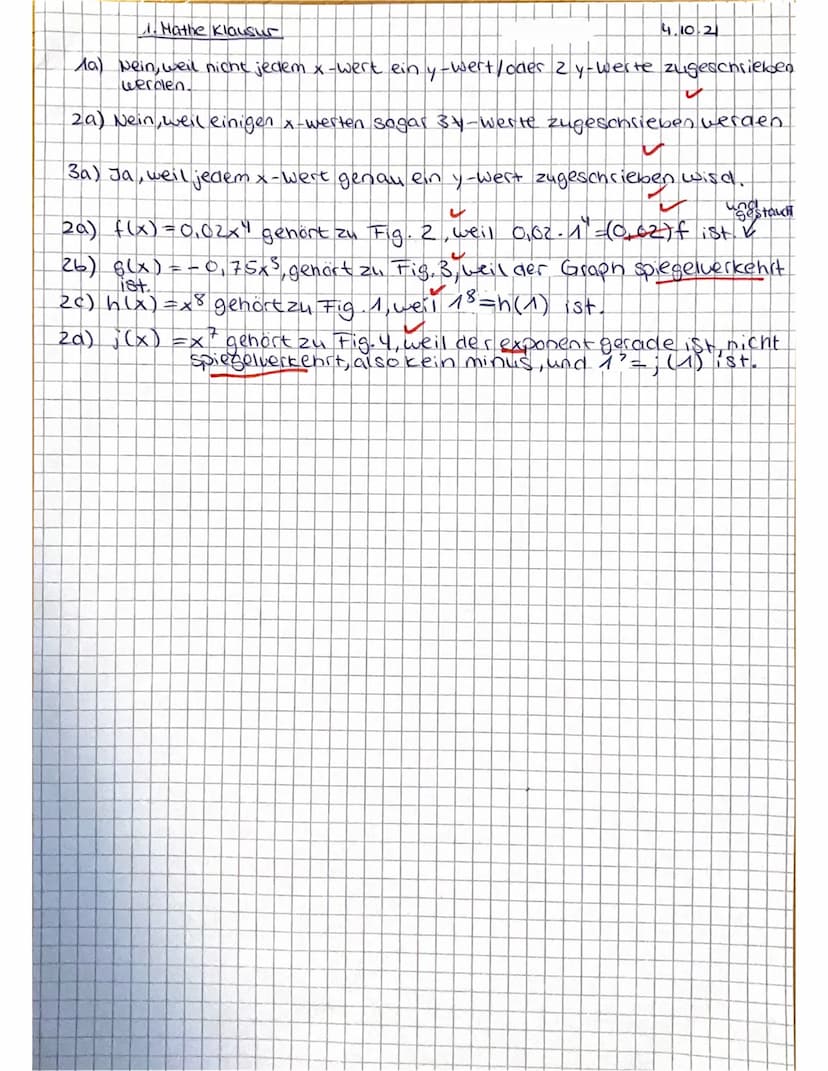 1. Mathe Klausur 4.10.21
1a) Nein, weil nicht jedem x-wert ein y-wert/oder 2 y-werte zugeschrieben
werden.
2a) Nein, weil einigen x-werten sogar 3 y-werte zugeschrieben werden
3a) Ja, weil jedem x-wert genau ein y-wert zugeschrieben wird.
und
gestaucht
2a) f(x) = 0,02x⁴ gehört zu Fig. 2, weil 0,02 · 1⁴ = (0,02) f ist.
2b) g(x) = -0,75x³, gehört zu Fig. 3, weil der Graph spiegelverkehrt
ist.
2c) h(x) = x⁸ gehört zu Fig. 1, weil 1⁸ = h(1) ist.
2d) j(x) = x⁷ gehört zu Fig. 4, weil der exponent gerade ist, nicht
spiegelverkehrt, also kein minus, und 1⁷ = j(1) ist.